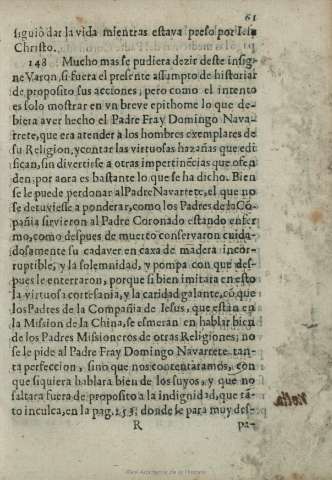 61
siguiò dar la vida mientras estava preso por Iesu
Christo.
148 Mucho mas se pudiera dezir deste insig-
ne Varon, si fuera el presente assumpto de historiar
de proposito sus acciones; pero como el intento
es solo mostrar en vn breve epithome lo que de-
biera aver hecho el Padre Fray Domingo Nava-
rrete, que era atender a los hombres exemplares de
su Religion, y contar las virtuosas hazañas que edi
fican, sin divertirse a otras impertinẽcias que ofen
den; por aora es bastante lo que se ha dicho. Bien
se le puede perdonar al Padre Navarrete, el que no
se detuviesse a ponderar, como los Padres de la Cõ-
pañia sirvieron al Padre Coronado estando enfer
mo, como despues de muerto conservaron cuida-
dosamente su cadaver en caxa de madera incor-
ruptible, y la solemnidad, y pompa con que des-
pues le enterraron, porque si bien imitara en esto
la virtuosa cortesania, y la caridad galante, cõ que
los Padres de la Compañia de Iesus, que estàn en
la Mission de la China, se esmeran en hablar bien
de los Padres Missioneros de otras Religiones; no
se le pide al Padre Fray Domingo Navarrete tan-
ta perfeccion, sino que nos contentaramos, con
que siquiera hablara bien de los suyos, y que no
saltara fuera de proposito a la indignidad, que tã-
to inculca, en la pag. 153. donde se para muy des-
R pa-
Real Academia de la Historia